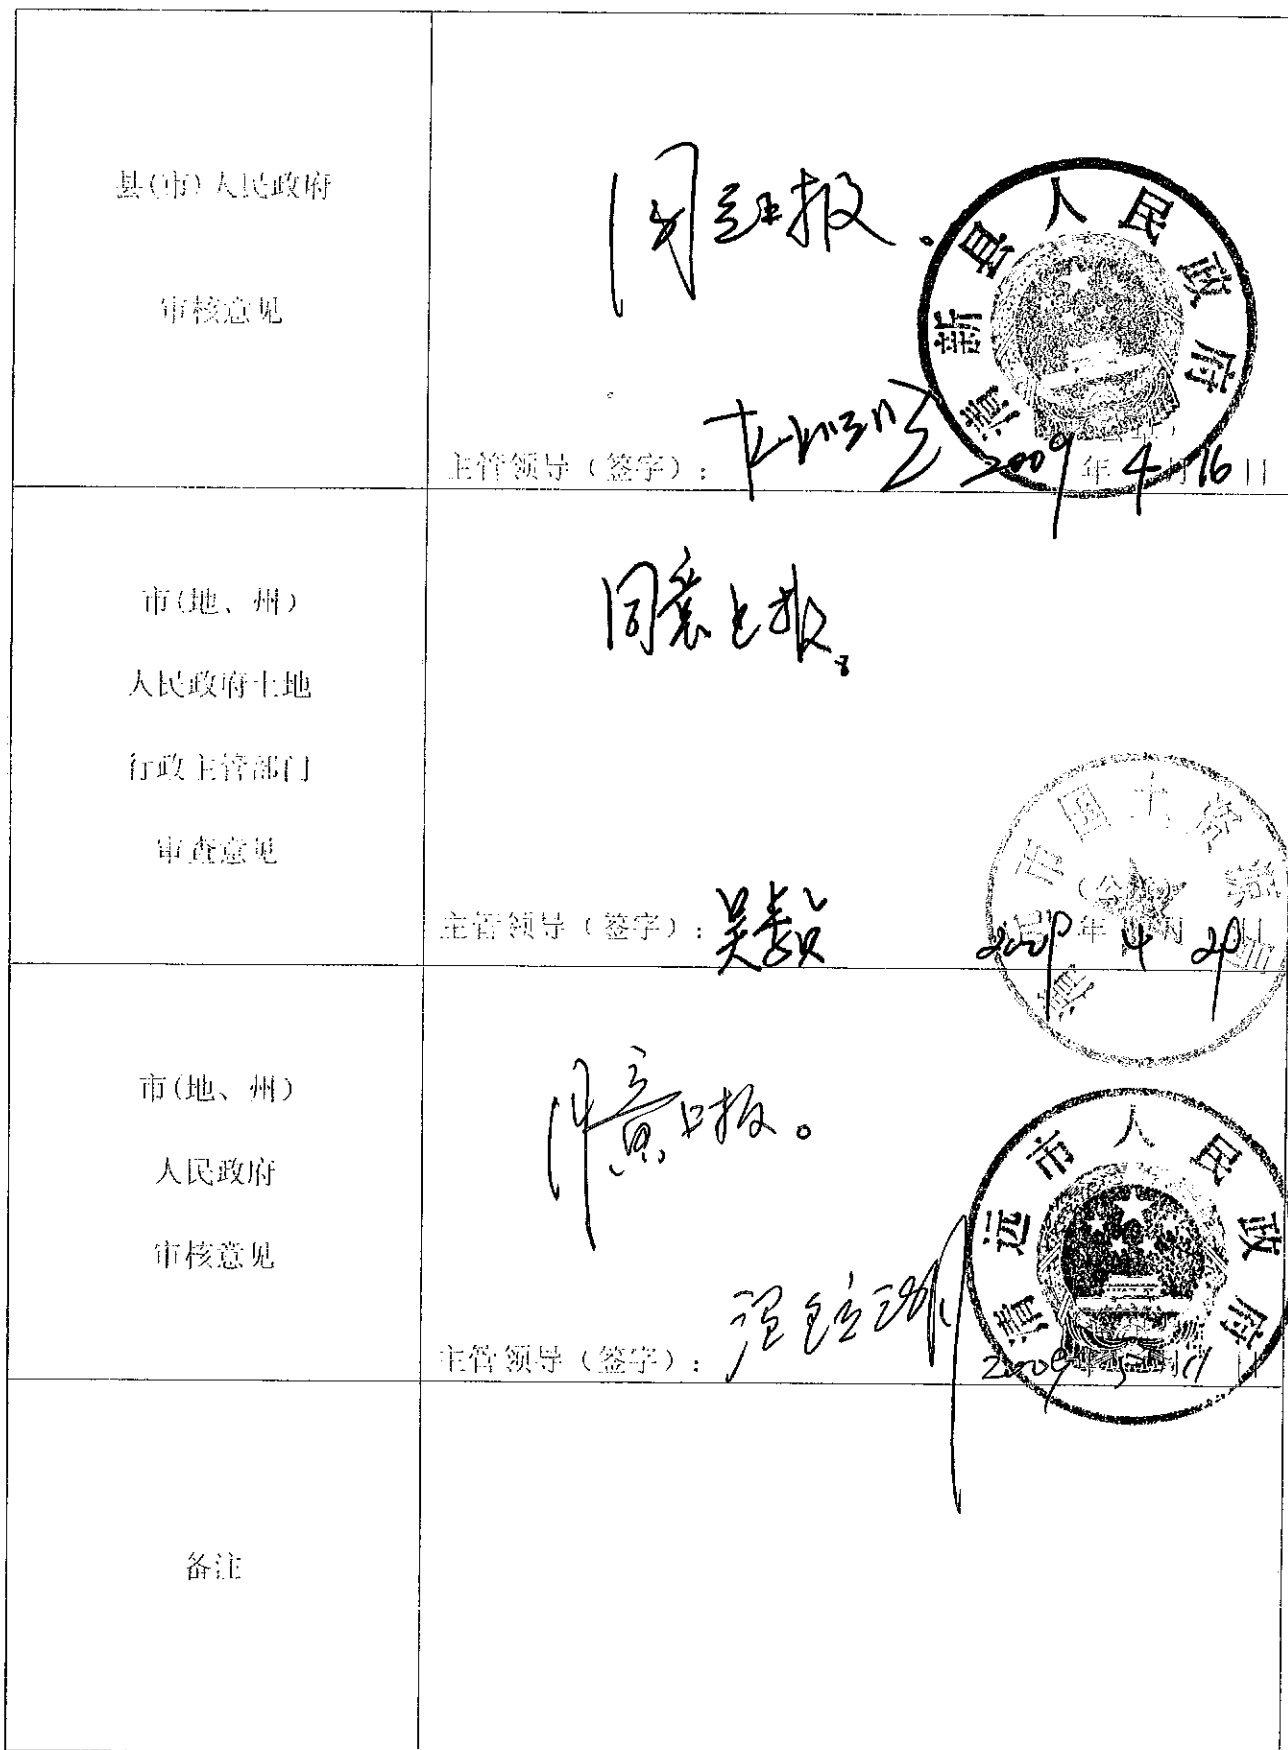 县(市)人民政府
审核意见
同意上报.
清新县人民政府
主管领导（签字）：
2009年4月16日
市(地、州)
人民政府土地
行政主管部门
审查意见
同意上报。
清远市国土资源局
（公章）
主管领导（签字）：
2009年4月29日
市(地、州)
人民政府
审核意见
同意上报。
清远市人民政府
主管领导（签字）：
2009年5月11日
备注